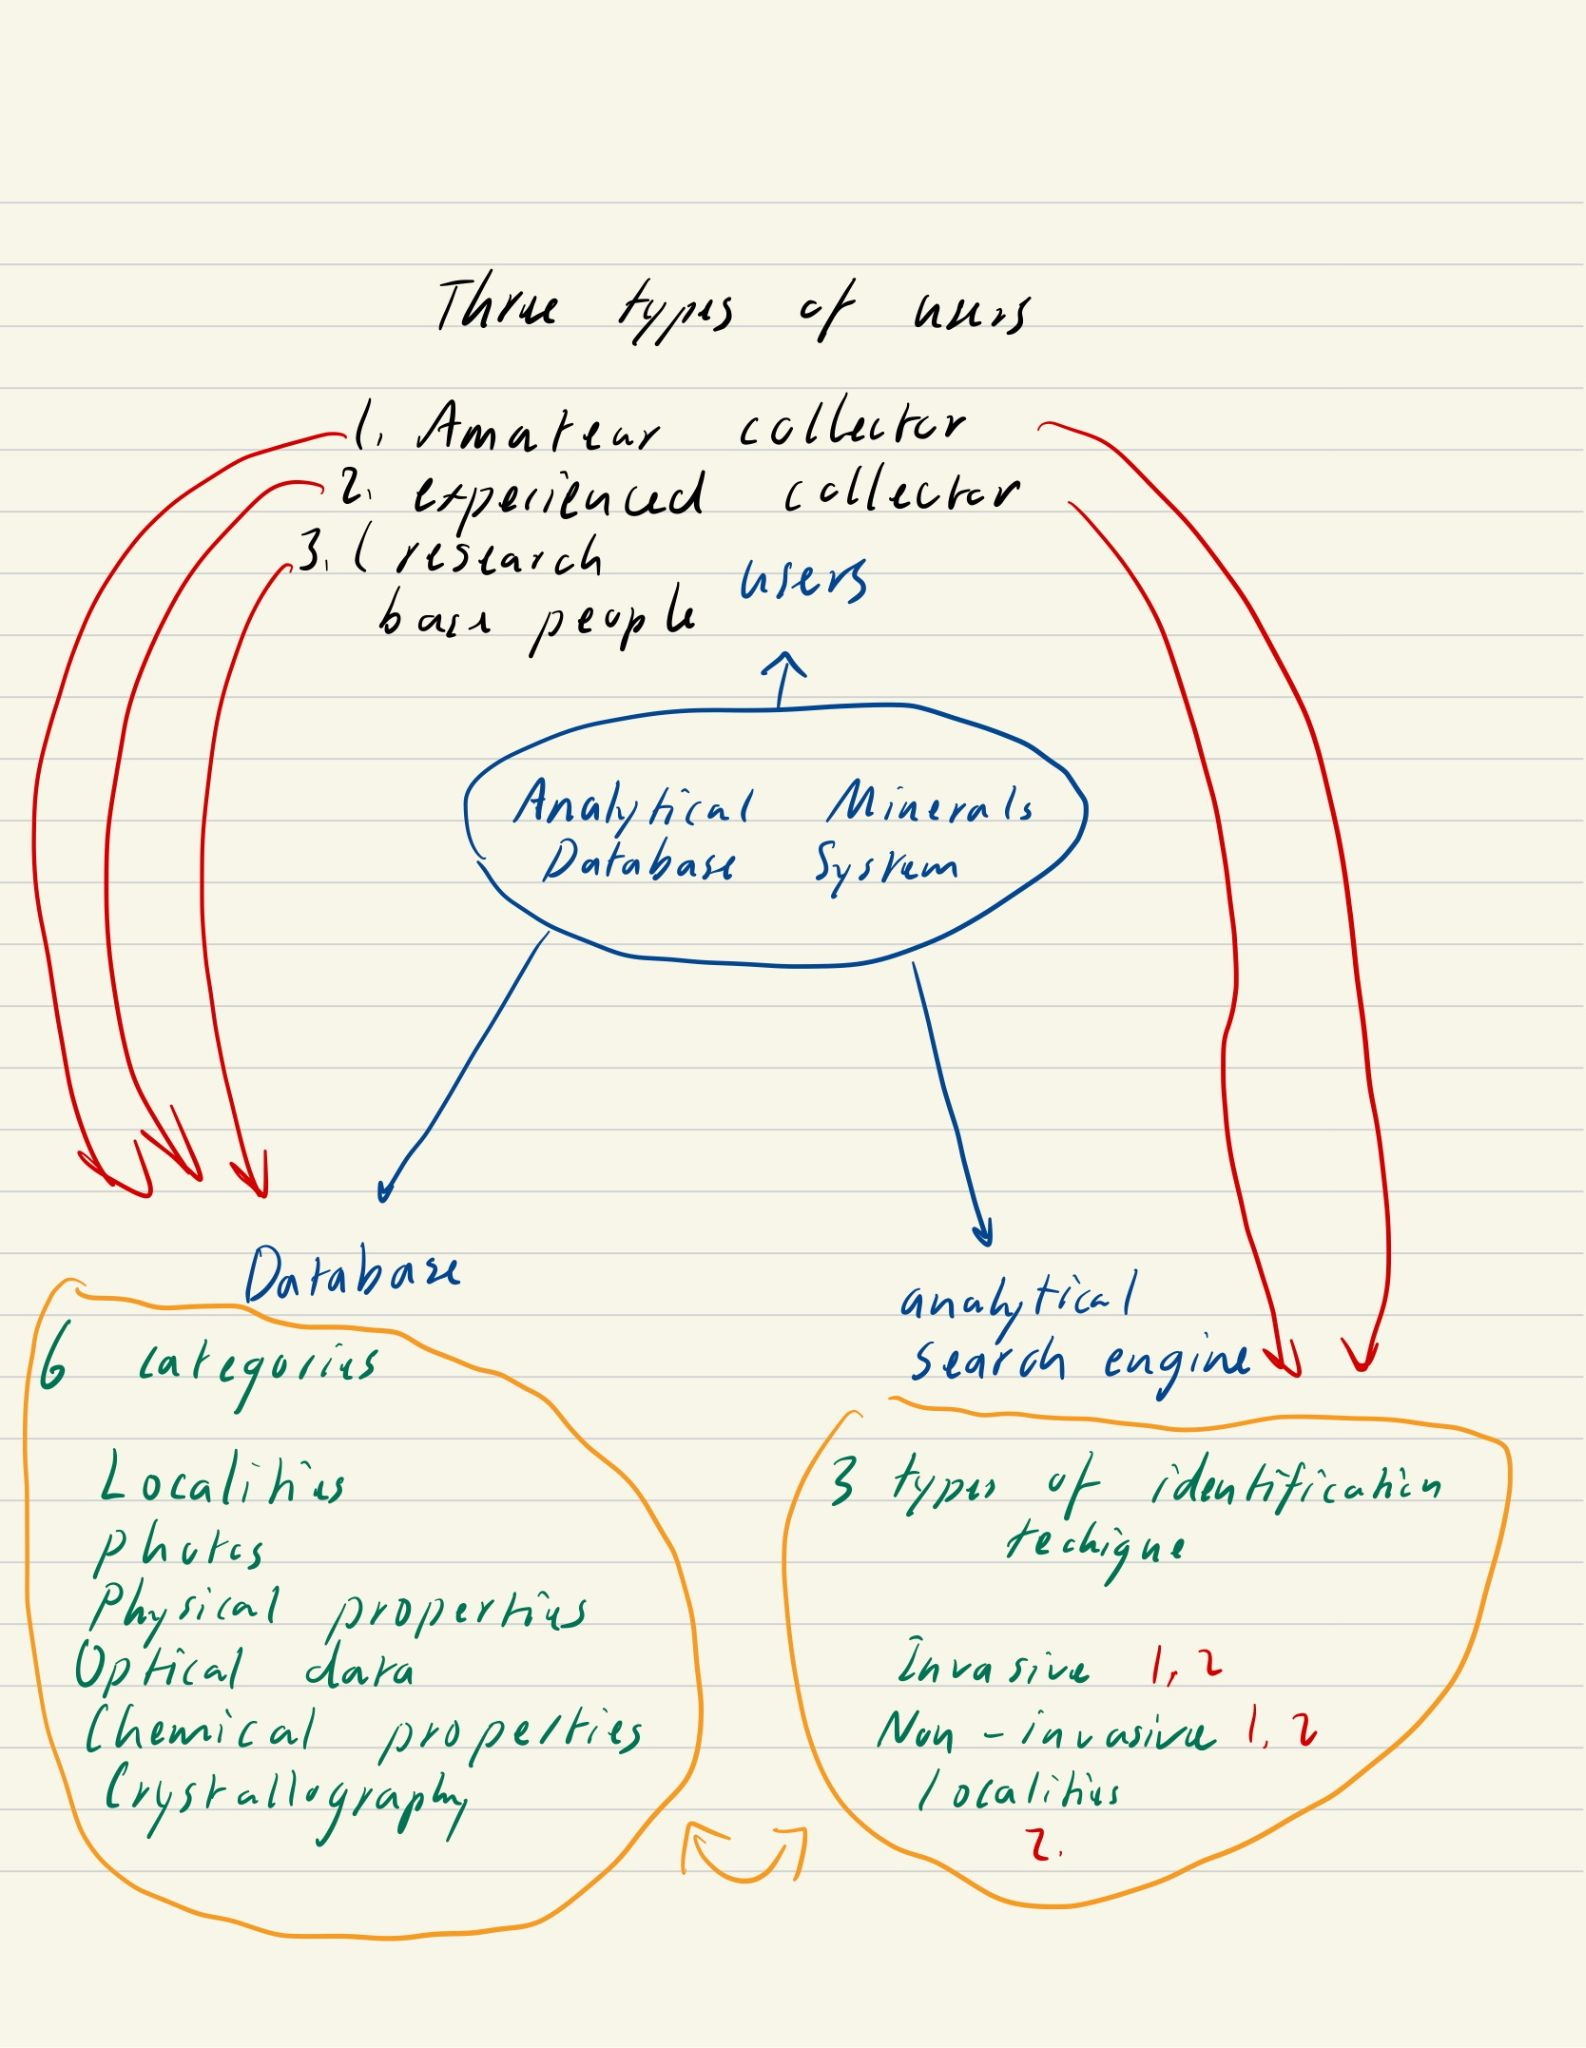 Three types of users
1. Amatear collector
2. experienced collector
3. ( research
base people
users
Analytical Minerals
Database System
Database
6 categories
Localities
photos
Physical properties
Optical data
Chemical properties
Crystallography
analytical
search engine
3 types of identification
techique
Invasive 1, 2
Non-invasive 1, 2
localities
2.